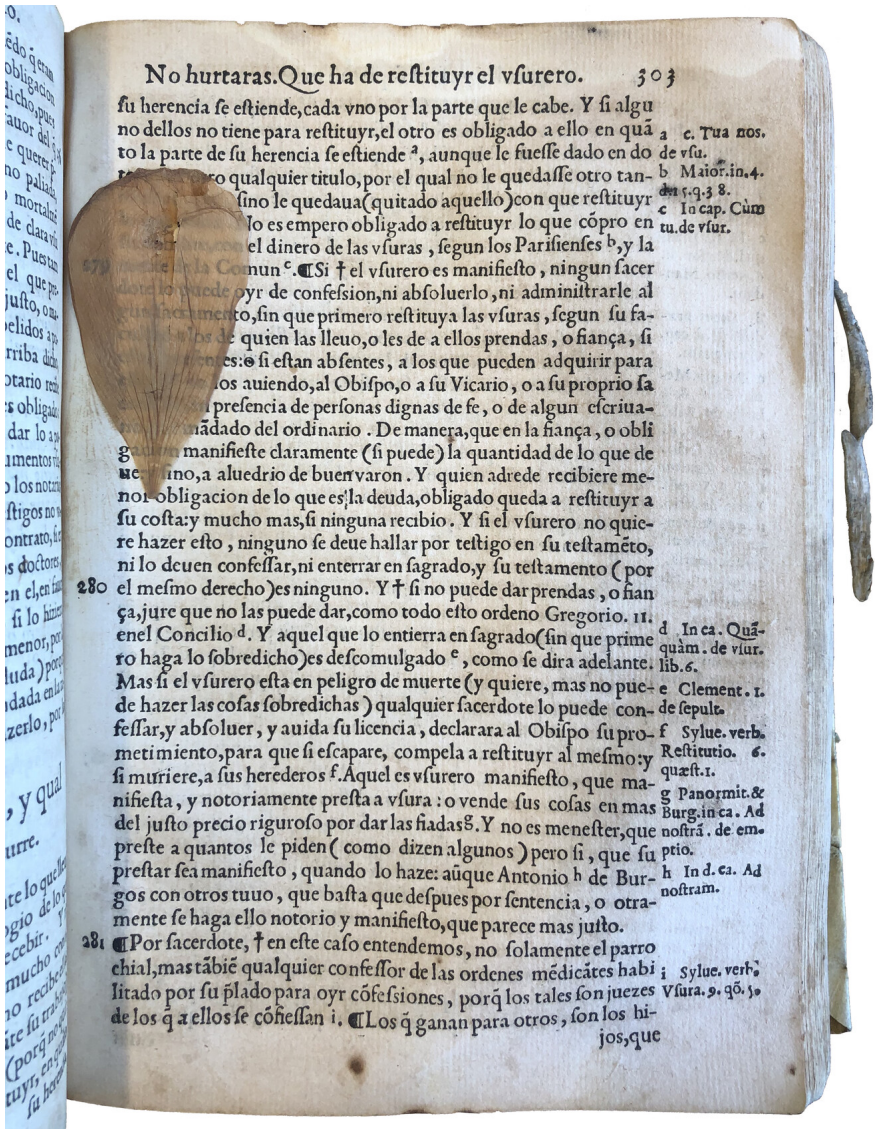 No hurtaras. Que ha de restituyr el vsurero. 303
su herencia se estiende, cada vno por la parte que le cabe. Y si algu
no dellos no tiene para restituyr, el otro es obligado a ello en quã
to la parte de su herencia se estiende ª, aunque le fuesse dado en do
qualquier titulo, por el qual no le quedasse otro tan-
sino le quedaua (quitado aquello) con que restituyr
No es empero obligado a restituyr lo que cõpro en
el dinero de las vsuras, segun los Parisienses b, y la
279 de la Comun c. ¶Si † el vsurero es manifiesto, ningun sacer
dote lo puede oyr de confession, ni absoluerlo, ni administrarle al
gun sacramento, sin que primero restituya las vsuras, segun su fa-
de quien las lleuo, o les de a ellos prendas, o fiança, si
si estan absentes, a los que pueden adquirir para
auiendo, al Obispo, o a su Vicario, o a su proprio sa
presencia de personas dignas de fe, o de algun escriua-
mãdado del ordinario. De manera, que en la fiança, o obli
gacion manifieste claramente (si puede) la quantidad de lo que de
ue, a aluedrio de buen varon. Y quien adrede recibiere me-
nor obligacion de lo que es la deuda, obligado queda a restituyr a
su costa: y mucho mas, si ninguna recibio. Y si el vsurero no quie-
re hazer esto, ninguno se deue hallar por testigo en su testamẽto,
ni lo deuen confessar, ni enterrar en sagrado, y su testamento (por
280 el mesmo derecho) es ninguno. Y † si no puede dar prendas, o fian
ça, jure que no las puede dar, como todo esto ordeno Gregorio. 11.
enel Concilio d. Y aquel que lo entierra en sagrado (sin que prime
ro haga lo sobredicho) es descomulgado e, como se dira adelante.
Mas si el vsurero esta en peligro de muerte (y quiere, mas no pue-
de hazer las cosas sobredichas) qualquier sacerdote lo puede con-
fessar, y absoluer, y auida su licencia, declarara al Obispo su pro-
metimiento, para que si escapare, compela a restituyr al mesmo: y
si muriere, a sus herederos f. Aquel es vsurero manifiesto, que ma-
nifiesta, y notoriamente presta a vsura: o vende sus cosas en mas
del justo precio riguroso por dar las fiadas g. Y no es menester, que
preste a quantos le piden (como dizen algunos) pero si, que su
prestar sea manifiesto, quando lo haze: aũque Antonio h de Bur-
gos con otros tuuo, que basta que despues por sentencia, o otra-
mente se haga ello notorio y manifiesto, que parece mas justo.
281 ¶Por sacerdote, † en este caso entendemos, no solamente el parro
chial, mas tãbiẽ qualquier confessor de las ordenes mẽdicãtes habi
litado por su p̃lado para oyr cõfessiones, porq̃ los tales son juezes
de los q̃ a ellos se cõfiessan i. ¶Los q̃ ganan para otros, son los hi-
jos, que
a c. Tua nos.
de vsu.
b Maior. in. 4.
5. q. 38.
c In cap. Cùm
tu. de vsur.
d In ca. Quã-
quàm. de vsur.
lib. 6.
e Clement. 1.
de sepult.
f Sylue. verb.
Restitutio. 6.
quæst. 1.
g Panormit. &
Burg. in ca. Ad
nostrã. de em-
ptio.
h In d. ca. Ad
nostram.
i Sylue. verb.
Vsura. 9. qõ. 5.